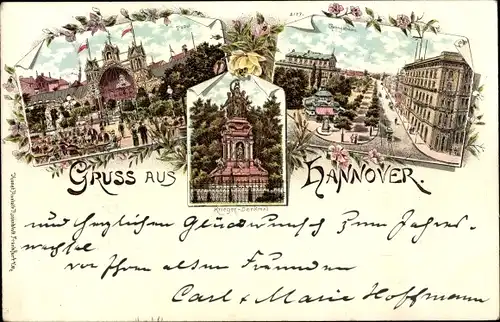 2127.
GRUSS AUS HANNOVER.
Krieger-Denkmal
und herzlichen Glückwunsch zum Jahres-
wechsel
von Ihren alten Freunden
Carl & Marie Hoffmann